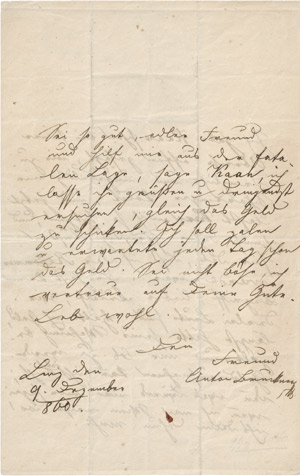 Sei so gut, edler Freund
und hilf mir aus der fata-
len Lage, sage Kaan, ich
lasse ihn grüßen u dringendst
ersuchen, gleich das Geld
zu schicken. Ich soll zalen
u erwartete jeden Tag schon
das Geld. Sei nicht böse, ich
vertraue auf Deine Güte.
Leb wohl.
Dein
Freund
Linz den
Anton Bruckner
9. Dezember
860.